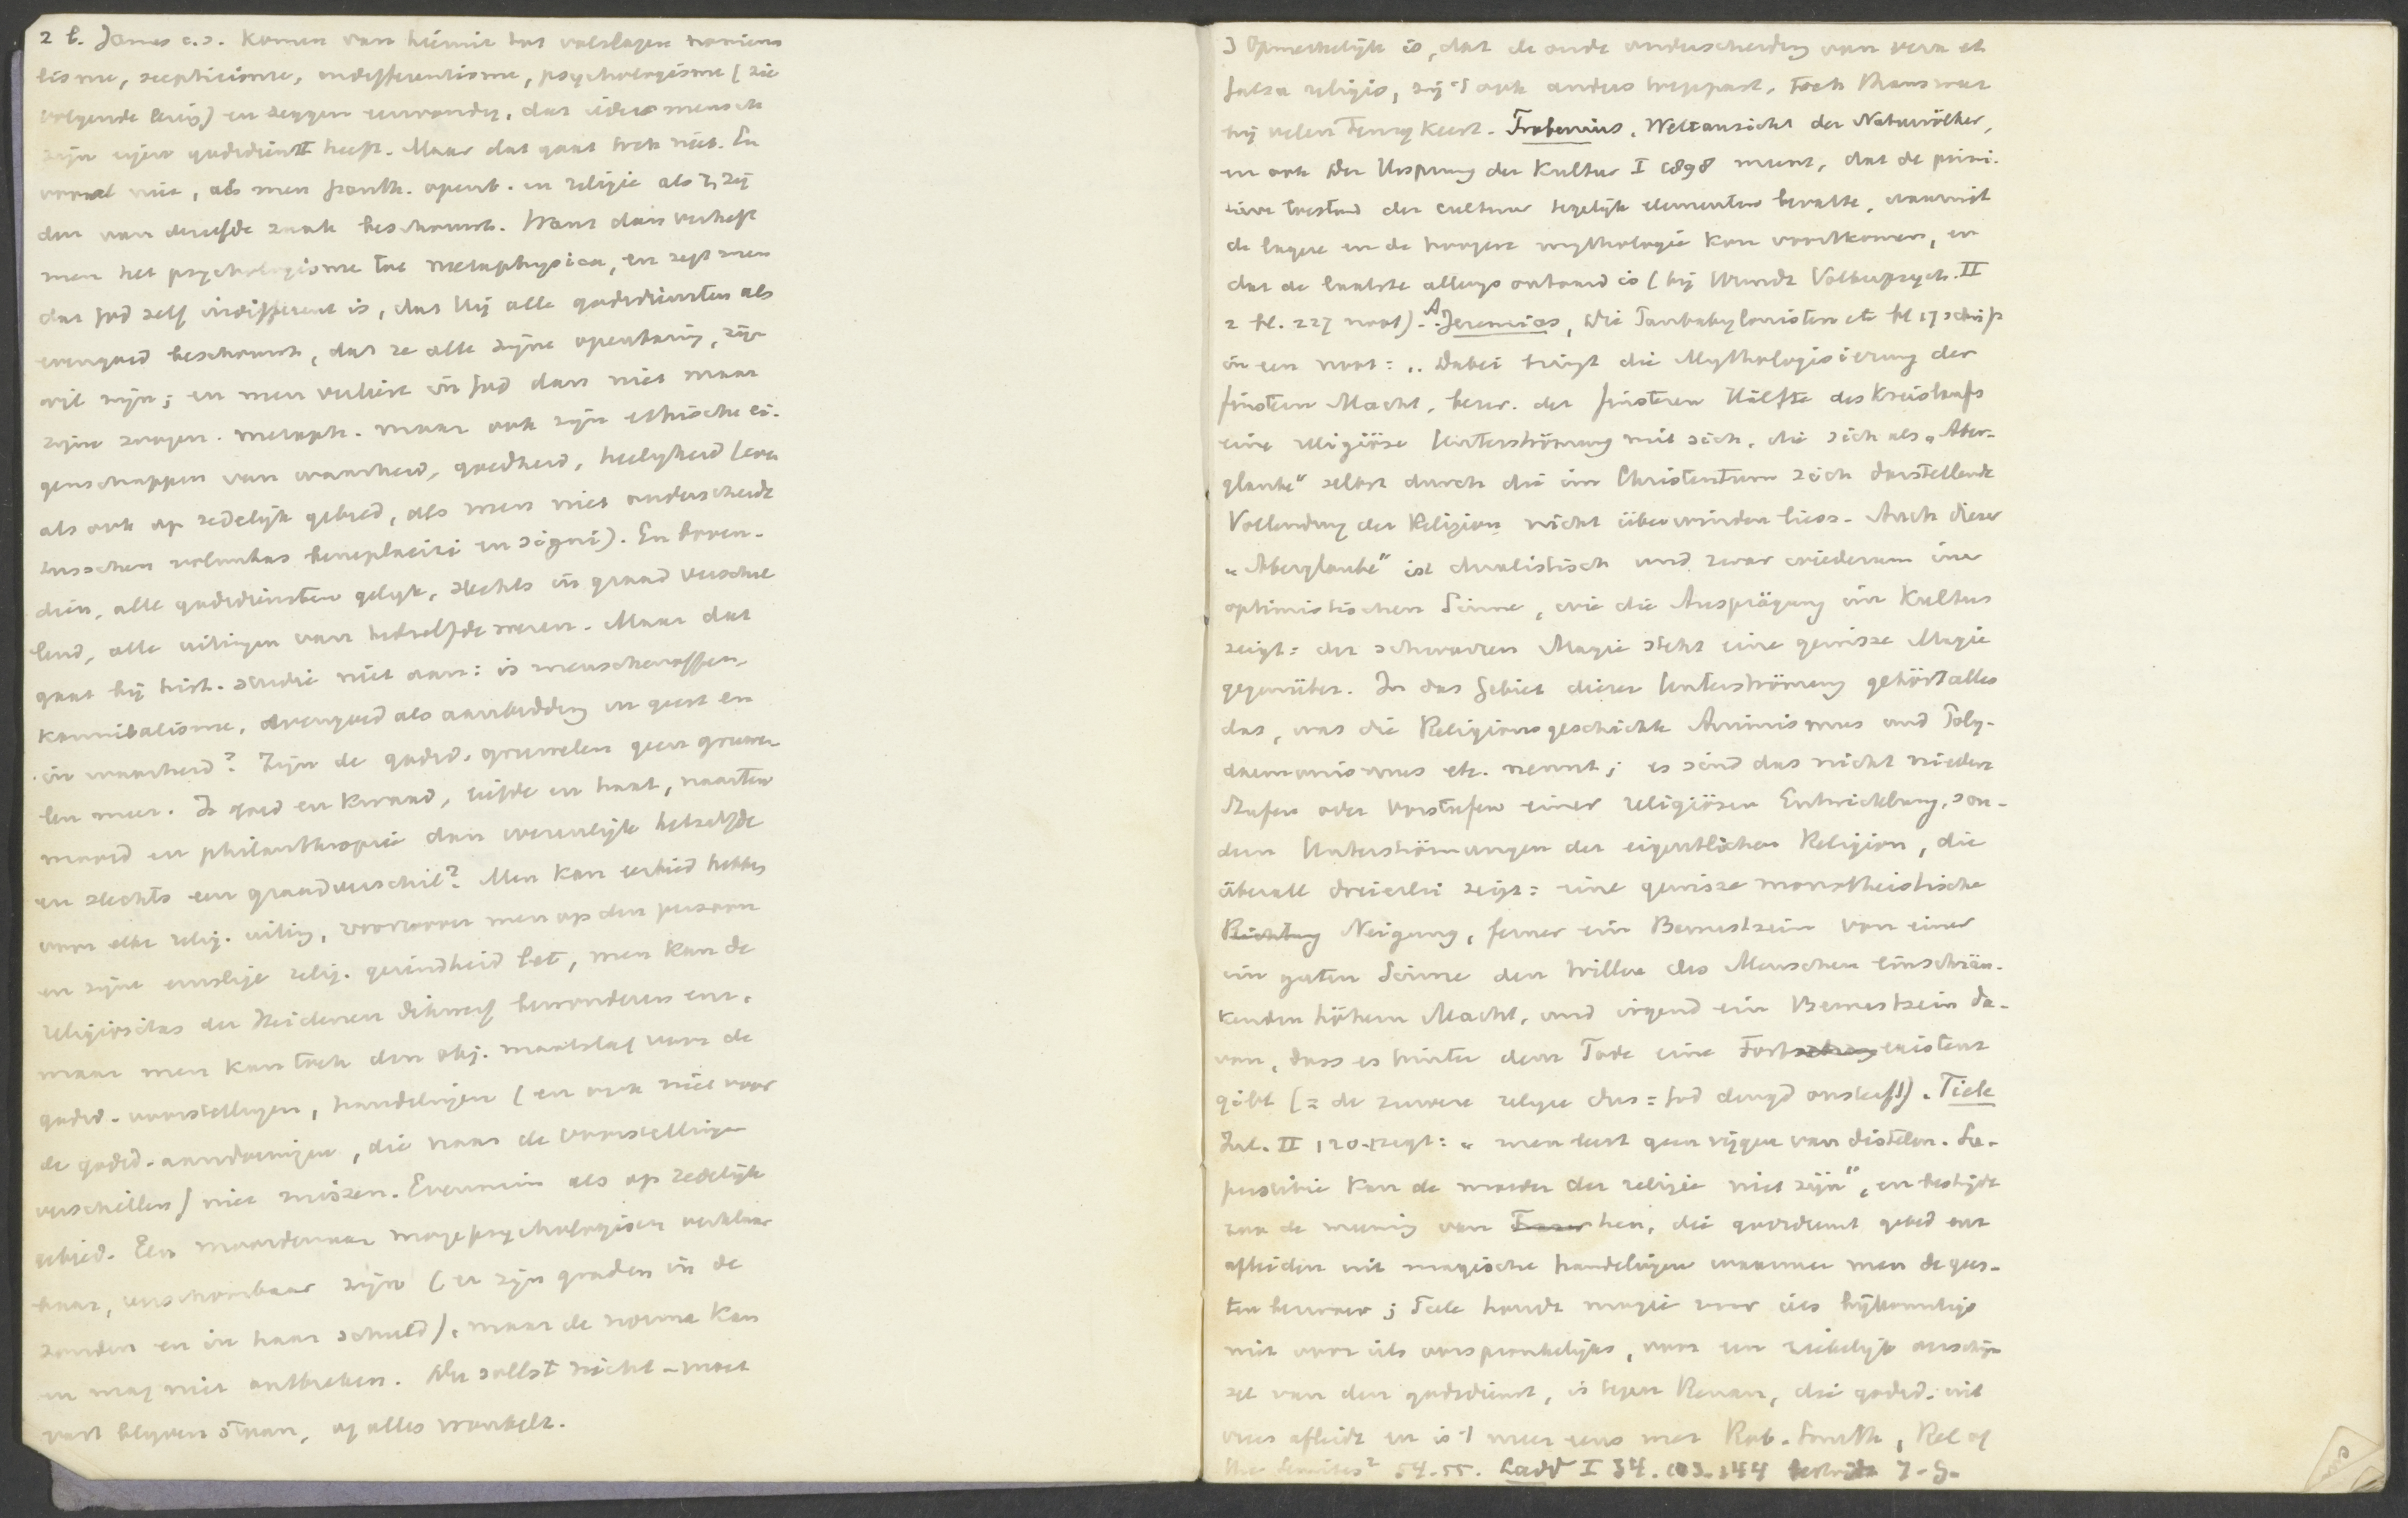 2 b. James c.s. komen van hieruit tot volslagen nomina
lisme, scepticisme, indifferentisme, psychologisme (zie
volgende bezig) en zeggen eenvoudig, dat ieder mensch
zijn eigen godsdienst heeft. Maar dat gaat toch niet. En
vooral niet, als men Goddl. openb. en religie als 2 zij
den van dezelfde zaak beschouwt. Want dan verheft
men het psychologisme tot metaphysica, en zegt men
dat God zelf indifferent is, dat Hij alle godsdiensten als
evengoed beschouwt, dat ze alle zijne openbaring, zijn
wil zijn; en men verliest in God dan niet maar
zijne zoogen. metaph. maar ook zijn ethische ei-
genschappen van waarheid, goedheid, heiligheid (even
als ook op zedelijk gebied, als men niet onderscheidt
tusschen voluntas beneplaciti en signi). En boven-
dien, alle godsdiensten gelijk, slechts in graad verschil
lend, alle uitingen van hetzelfde wezen. Maar dat
gaat bij hist. studie niet aan: is menschenoffer,
kannibalisme, evengoed als aanbidding in geest en
in waarheid? Zijn de godsd. gruwelen geen gruwe-
len meer. Is goed en kwaad, liefde en haat,
moord en philanthropie dan wezenlijk hetzelfde
en slechts een graadverschil? Men kan eerbied hebben
voor elke relig. uiting, voorzoover men op den persoon
en zijne ernstige relig. gezindheid let, men kan de
religiositas der Heidenen dikwerf bewonderen enz.
maar men kan toch den obj. maatstaf voor de
godsd. voorstellingen, handelingen (en ook niet voor
de godsd. aandoeningen, die naar de voorstellingen
verschillen) niet missen. Evenmin als op zedelijk
gebied. Een moordenaar moge psychologisch verklaar
baar, verschoonbaar zijn (er zijn graden in de
zonden en in haar schuld), maar de norma kan
en mag niet ontbreken. Du sollst nicht - moet
vast blijven staan, of alles wankelt.
3 Opmerkelijk is, dat de oude onderscheiding van vera et
falsa religio, zij 't ook anders toegepast, toch thans weer
bij velen terugkeert. Frobenius, Weltansicht der Naturvölker,
en ook Der Ursprung der Kultur I 1898 meent, dat de primi-
tieve toestand der cultuur tegelijk elementen bevatte, waaruit
de lagere en de hoogere mythologie kon voortkomen, en
dat de laatste allengs ontaard is (bij Wundt Völkerpsych. II
2 bl. 227 noot). A. Jeremias, Die Panbabylonisten etc bl 17 schrijft
in een noot: „Dabei bringt die Mythologisierung der
finstern Macht, bezw. der finsteren Hälfte des Kreislaufs
eine religiöse Unterströmung mit sich, die sich als „Aber-
glaube" selbst durch die im Christentum sich darstellende
Vollendung der Religion nicht überwinden liess. Auch dieser
„Aberglaube" ist dualistisch und zwar wiederum im
optimistischen Sinne, wie die Ausprägung im Kultus
zeigt: der schwarzen Magie steht eine gewisse Magie
gegenüber. In das Gebiet dieser Unterströmung gehört alles
das, was die Religionsgeschichte Animismus und Poly-
daemonismus etc. nennt; es sind das nicht niedere
Stufen oder Vorstufen einer religiösen Entwicklung, son-
dern Unterströmungen der eigentlichen Religion, die
überall dreierlei zeigt: eine gewisse monotheistische
Richtung Neigung, ferner ein Bewustsein von einer
im guten Sinne den Willen des Menschen einschrän-
kenden höhern Macht, und irgend ein Bewustsein da-
von, dass es hinter dem Tode eine Fortexistenz
gibt (= de zuivere religie dus = God deugd onsterf!). Tiele
Inl. II 120 zegt: „men leest geen vijgen van distelen. Su-
perstitie kan de moeder der religie niet zijn", en bestrijdt
dan de meening van hen, die godsdienst gebed enz
afleiden uit magische handelingen waarmee men de gees-
ten bezwoer; Tiele houdt magie voor iets bijkomstigs
niet voor iets oorspronkelijks, voor een ziekelijk verschijn
sel van den godsdienst, is tegen Renan, die godsd. uit
vrees afleidt en is 't meer eens met Rob. Smith, Rel of
the Semites² 54-55. Ladd I 34. 103. 144 bestrijdt